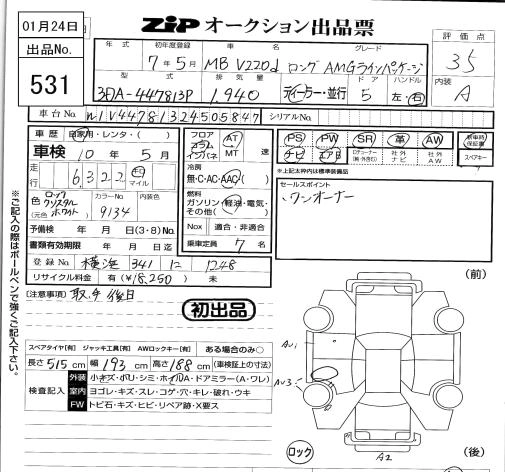 01月24日
出品No.
531
ZIP オークション出品票
年式 初年度登録 車名 グレード
7年5月 MB V220d ロング AMGラインパッケージ
型式 排気量 ドア ハンドル
3DA-447813P 1,940 ディーラー・並行 5 左・右
評価点
3.5
内装
A
車台No. W1V44781324505847 シリアルNo.
車歴 自家用・レンタ・( )
車検 10年5月
走行 6,322 キロ マイル
色 (元色) ロッククリスタルホワイト カラーNo. 9134 内装色
予備検 年 月 日(3・8)No.
書類有効期限 年 月 日迄
登録No. 横浜 341 12 1248
リサイクル料金 有(¥18,250) 未
フロア コラム インパネ AT MT 速
冷房 無・C・AC・AAC
燃料 ガソリン・軽油・電気・その他( )
Nox 適合・非適合
乗車定員 7名
PS PW SR 革 AW
ナビ エアB 社外ナビ 社外AW
新車時保証書
スペアキー
※上記太枠内は標準装備品
セールスポイント
・ワンオーナー
※ご記入の際はボールペンで強くご記入下さい。
(注意事項) 取、予後日
初出品
スペアタイヤ[有] ジャッキ工具[有] AWロックキー[有] ある場合のみ○
長さ 515 cm 幅 193 cm 高さ 188 cm (車検証上の寸法)
検査記入
外装 小キズ・ボリ・シミ・ホイルA・ドアミラー(A・ワレ)
室内 ヨゴレ・キズ・スレ・コゲ・穴・キレ・破れ・ウキ
FW トビ石・キズ・ヒビ・リペア跡・X要ス
(前)
AU1
AU3
A2
ロック
(後)